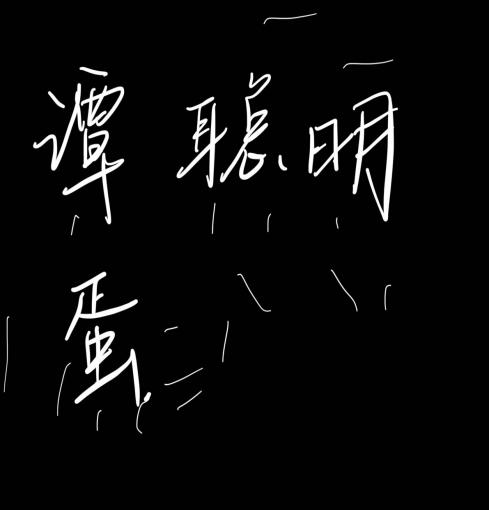 谭聪明
蛋